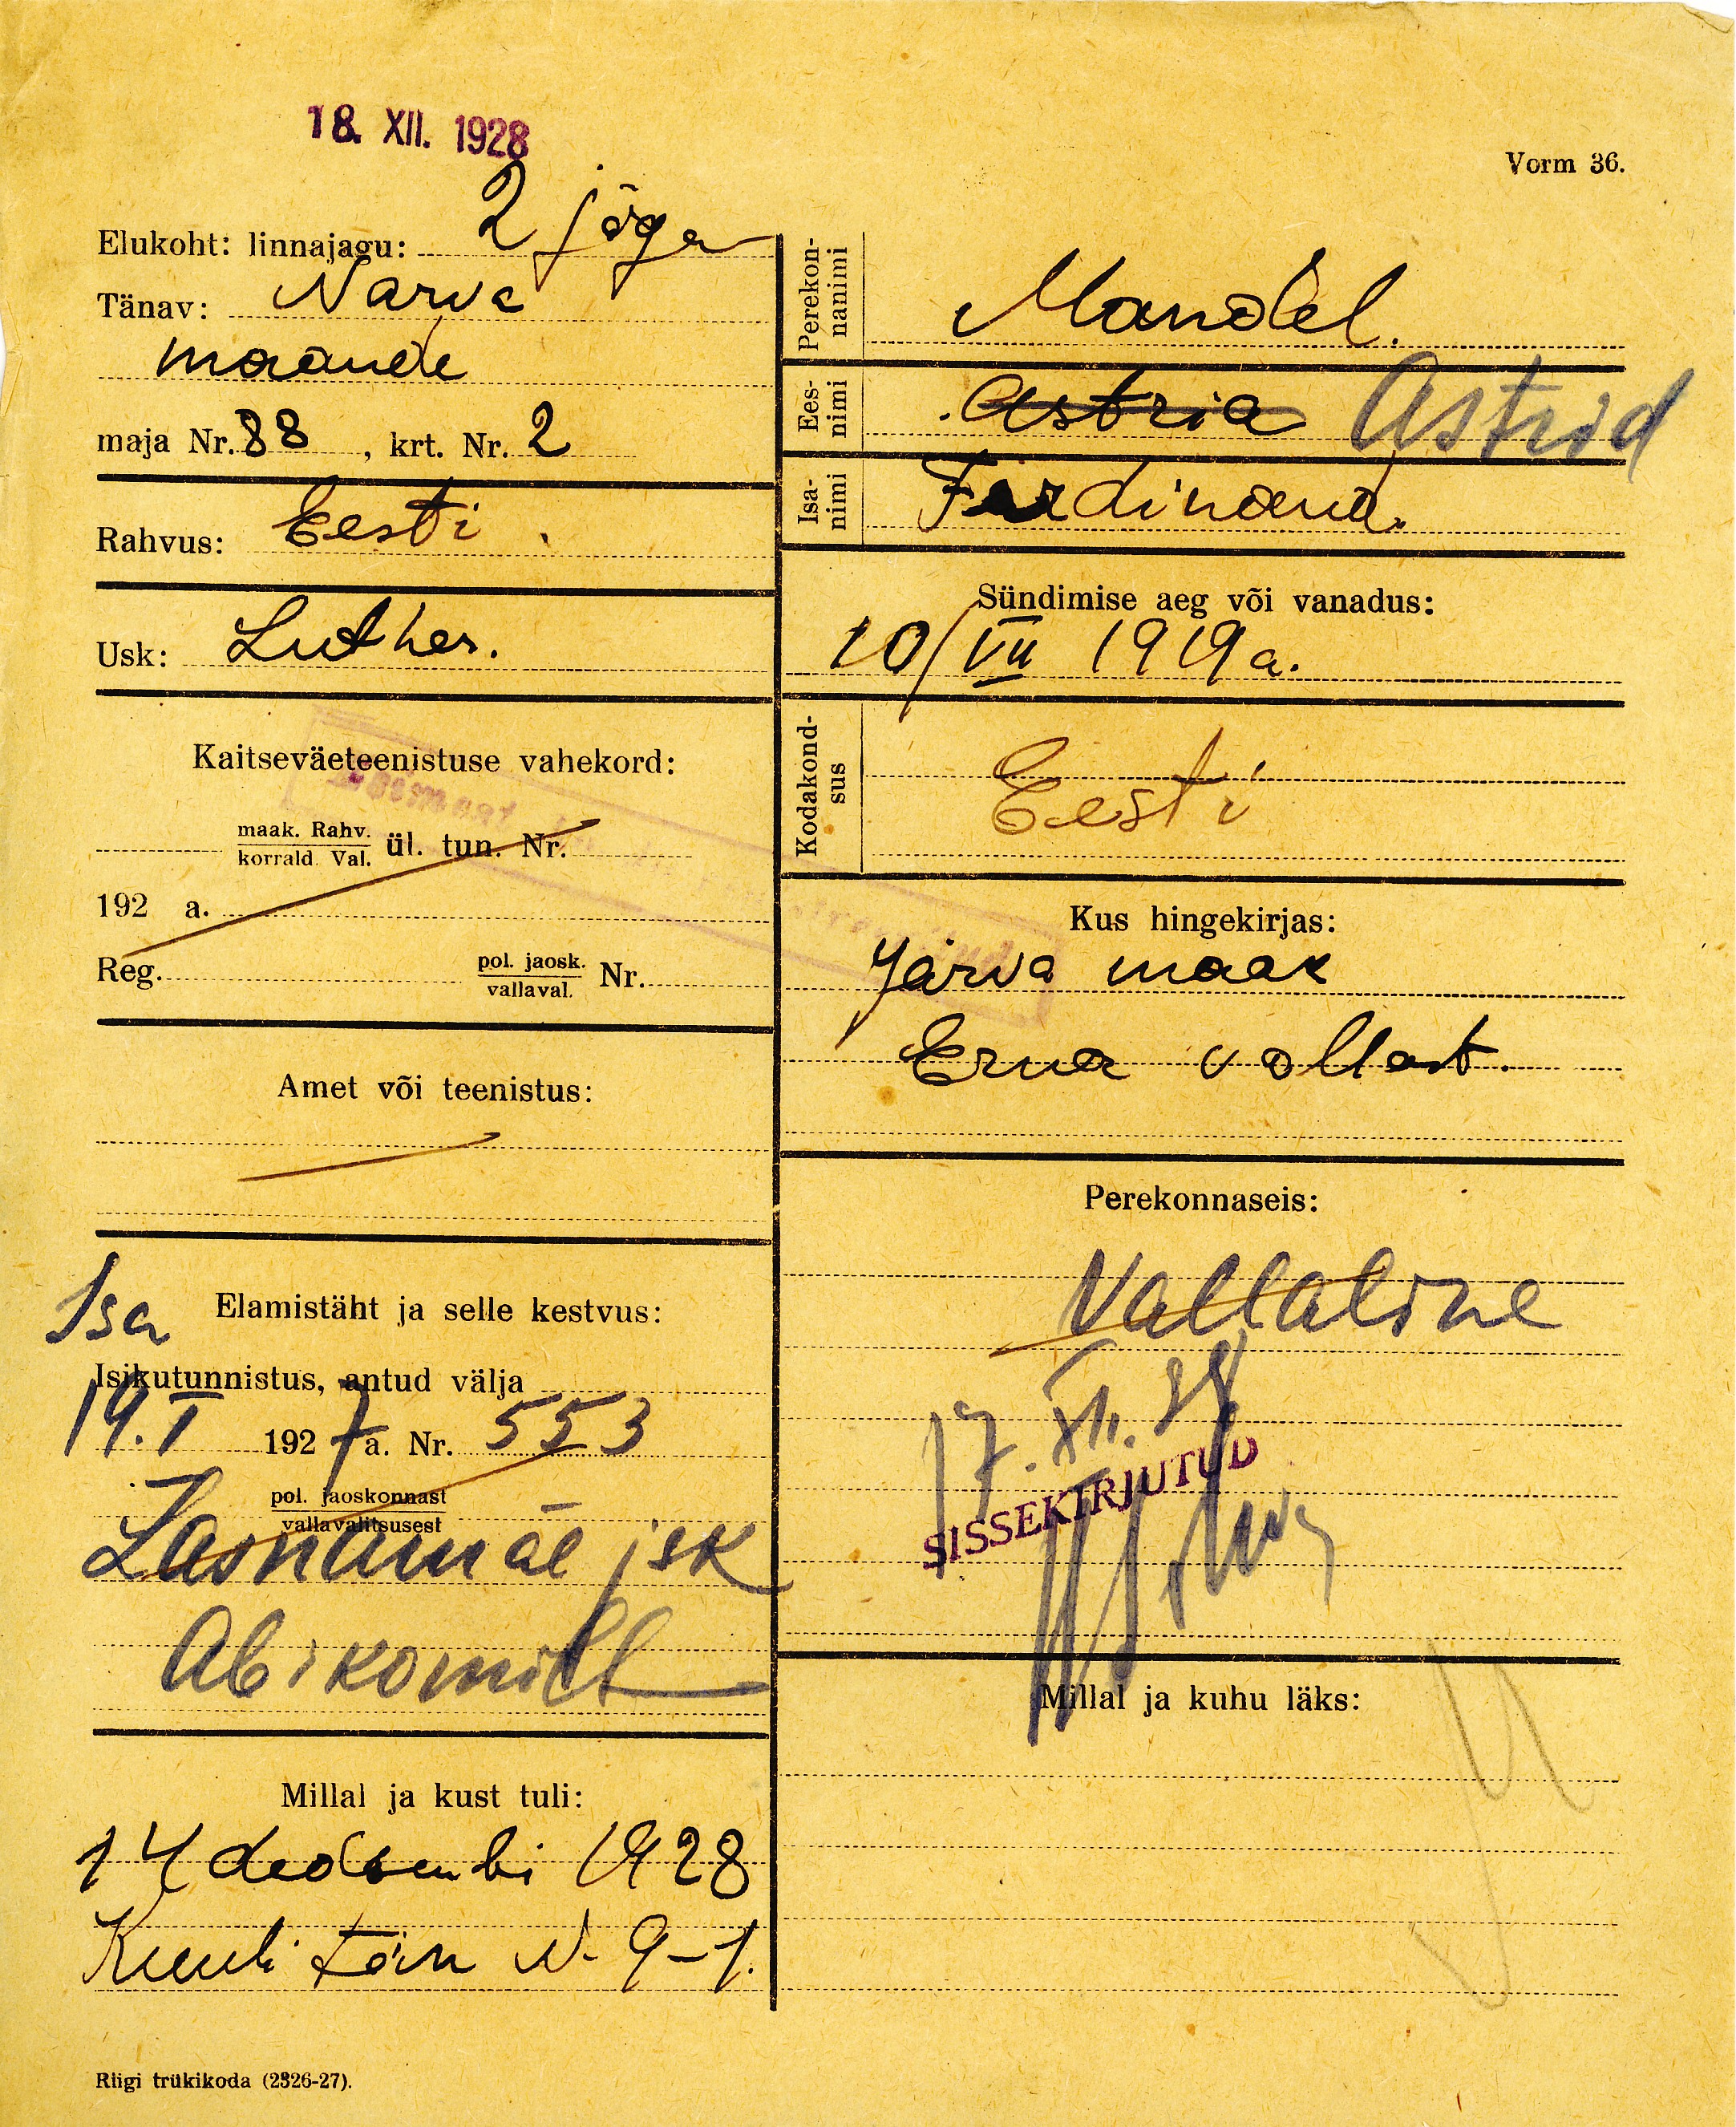 18. XII. 1928
Vorm 36.
Elukoht: linnajagu: 2 jõgu
Tänav: Narva
maande
maja Nr. 88, krt. Nr. 2
Rahvus: Eesti.
Usk: Luther.
Kaitseväeteenistuse vahekord:
maak. Rahv.
korrald. Val. ül. tun. Nr.
192 a.
Reg. pol. jaosk.
vallaval. Nr.
Amet või teenistus:
Isa Elamistäht ja selle kestvus:
Isikutunnistus, antud välja
19. I 1927 a. Nr. 553
pol. jaoskonnast
vallavalitsusest
Lasnamäe jsk
Abikomill
Millal ja kust tuli:
14 dedsembi 1928
Kuuli tän N- 9-1.
Riigi trükikoda (2326-27).
Perekon-
nanimi
Mandel.
Ees-
nimi
Astria Astrid
Isa-
nimi
Ferdinand.
Sündimise aeg või vanadus:
10/VII 1919 a.
Kodakond-
sus
Eesti
Kus hingekirjas:
Järva maak
Erva vallast.
Perekonnaseis:
Vallaline
17. XII. 28
SISSEKIRJUTUD
Millal ja kuhu läks: